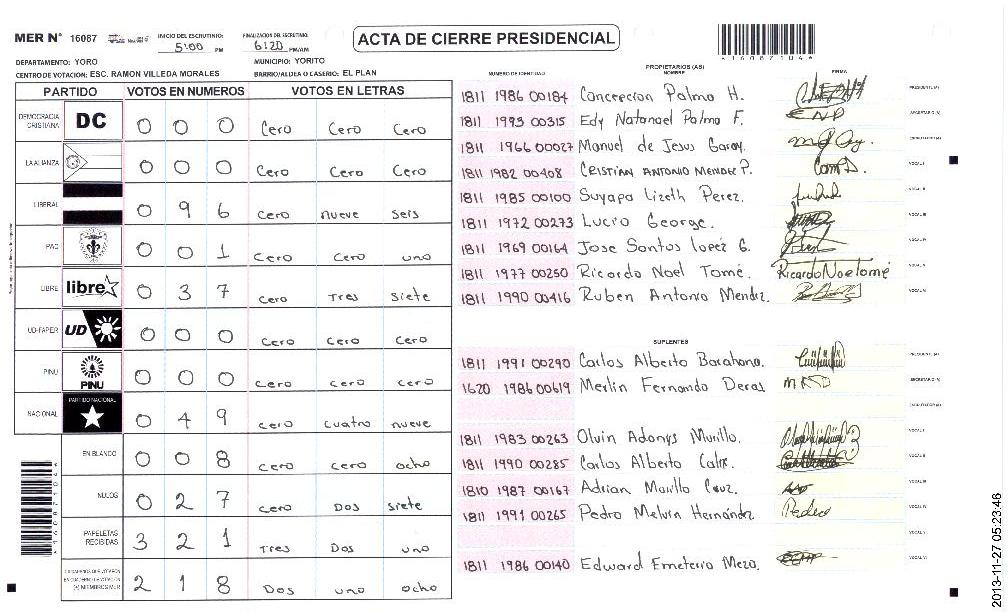 MER N° 16087
INICIO DEL ESCRUTINIO: 5:00 PM
FINALIZACION DEL ESCRUTINIO: 6:20 PM/AM
ACTA DE CIERRE PRESIDENCIAL
DEPARTAMENTO: YORO MUNICIPIO: YORITO
CENTRO DE VOTACION: ESC. RAMON VILLEDA MORALES BARRIO/ALDEA O CASERIO: EL PLAN
PARTIDO VOTOS EN NUMEROS VOTOS EN LETRAS
DEMOCRACIA CRISTIANA DC 0 0 0 Cero Cero Cero
LA ALIANZA 0 0 0 Cero Cero Cero
LIBERAL 0 9 6 Cero nueve seis
PAC 0 0 1 Cero Cero uno
LIBRE libre 0 3 7 Cero Tres siete
UD-FAPER UD 0 0 0 Cero Cero Cero
PINU PINU 0 0 0 Cero Cero Cero
NACIONAL PARTIDO NACIONAL 0 4 9 Cero Cuatro nueve
EN BLANCO 0 0 8 Cero Cero ocho
NULOS 0 2 7 Cero Dos siete
PAPELETAS RECIBIDAS 3 2 1 Tres Dos uno
2 1 8 Dos uno ocho
PROPIETARIOS (AS)
NUMERO DE IDENTIDAD NOMBRE FIRMA
1811 1986 00184 Concepcion Palma H. PRESIDENTE (A)
1811 1993 00315 Edy Natanael Palma F. ENP SECRETARIO (A)
1811 1966 00027 Manuel de Jesus Garay.
1811 1982 00408 CRISTIAN ANTONIO MENDEZ P. VOCAL I
1811 1985 00100 Suyapa Lizeth Perez. VOCAL II
1811 1972 00273 Lucio George. VOCAL III
1811 1969 00164 Jose Santos lopez G. VOCAL IV
1811 1977 00250 Ricardo Noel Tomé. Ricardo Noe tomé VOCAL V
1811 1990 00416 Ruben Antonio Mendez. VOCAL VI
SUPLENTES
1811 1991 00290 Carlos Alberto Barahona. PRESIDENTE (A)
1620 1986 00619 Merlin Fernando Deras SECRETARIO (A)
1811 1983 00263 Olvin Adonys Murillo. VOCAL I
1811 1990 00285 Carlos Alberto Calix. VOCAL II
1810 1987 00167 Adrian Murillo Cruz. VOCAL III
1811 1991 00265 Pedro Melvin Hernández Pedro VOCAL IV
VOCAL V
1811 1986 00140 Edward Emeterio Meza. VOCAL VI
2013-11-27 05:23:46